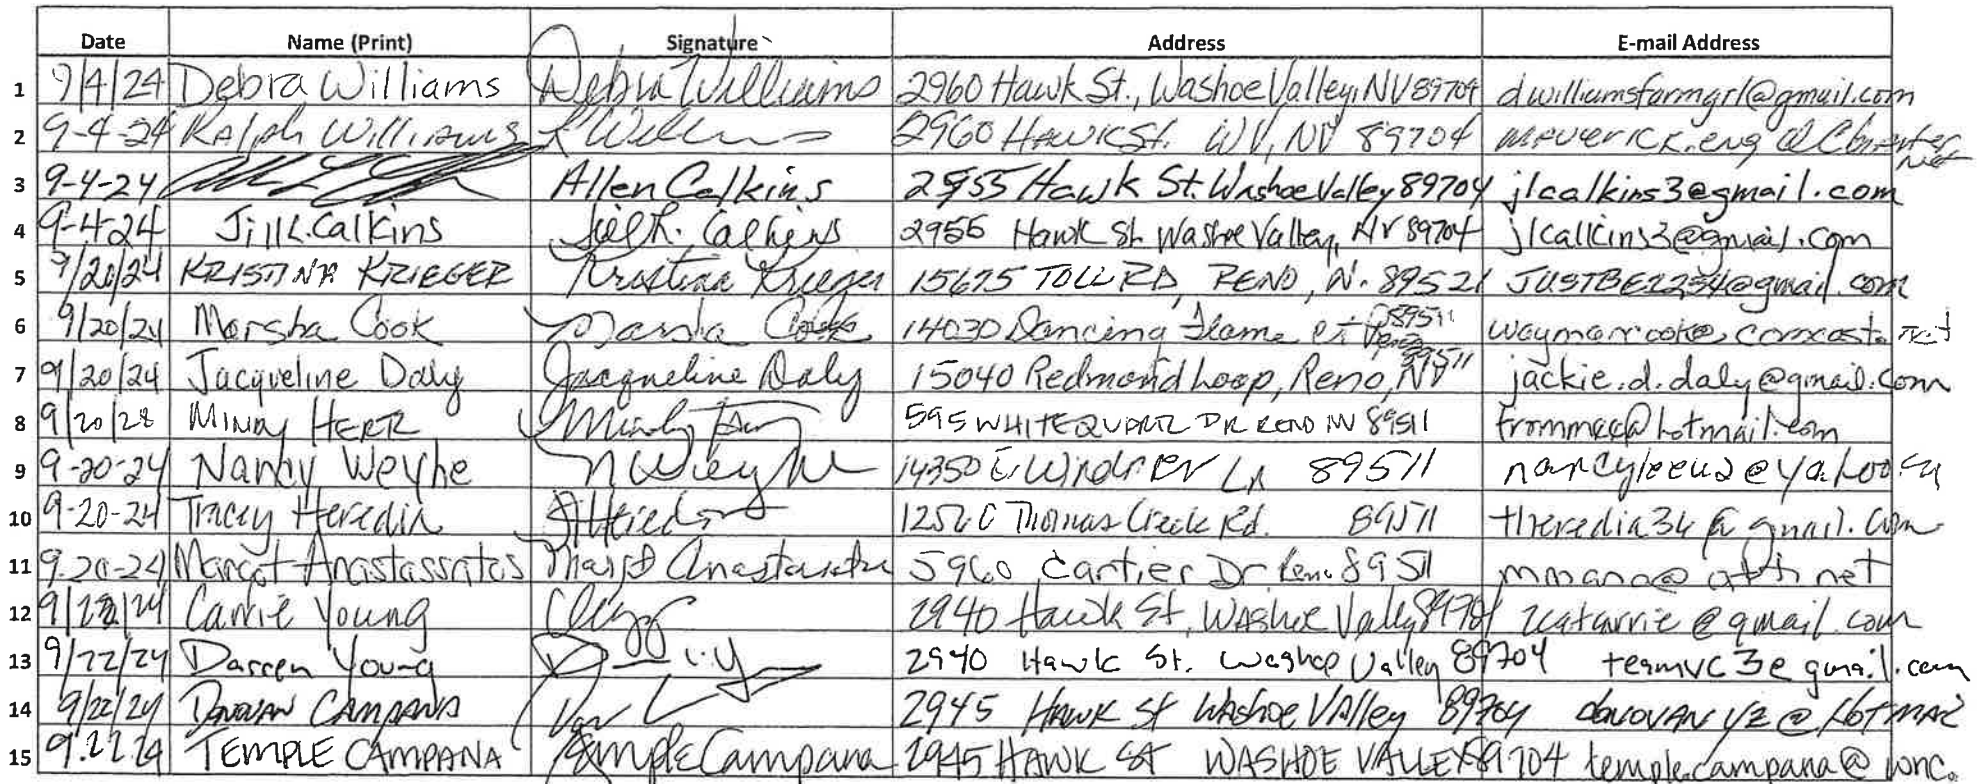 Date Name (Print) Signature Address E-mail Address
1 9/4/24 Debra Williams Debra Williams 2960 Hawk St., Washoe Valley, NV 89704 dwilliamsfarmgrl@gmail.com
2 9-4-24 Ralph Williams 2960 Hawk St. WV, NV 89704 maverick.eng@Charter.net
3 9-4-24 Allen Calkins 2955 Hawk St. Washoe Valley 89704 jlcalkins3@gmail.com
4 9-4-24 Jill R. Calkins Jill R. Calkins 2955 Hawk St. Washoe Valley, NV 89704 jlcalkins3@gmail.com
5 9/20/24 KRISTINA KRIEGER Kristina Krieger 15675 TOLL RD, RENO, N. 89521 JUSTBE1234@gmail.com
6 9/20/24 Marsha Cook Marsha Cook 14030 Dancing Flame Ct Reno 89511
7 9/20/24 Jacqueline Daly Jacqueline Daly 15040 Redmond Loop, Reno, NV 89511 jackie.d.daly@gmail.com
8 9/20/28 MINDY HERR 595 WHITE QUARTZ DR RENO NV 89511 frommac@hotmail.com
9 9-20-24 Nancy Weyhe N Weyhe 14350 E. Windriver Ln 89511
10 9-20-24 Tracey Heredia Thomas Creek Rd. 89511 theredia36@gmail.com
11 9-20-24 Margot Anastassatos Margot Anastassatos 5960 Cartier Dr Reno 89511 mmana@att.net
12 Carrie Young 2940 Hawk St, Washoe Valley 89704
13 9/22/24 Darren Young 2940 Hawk St. Washoe Valley 89704 teamvc3@gmail.com
14 9/22/24 DONOVAN CAMPANA 2945 HAWK St Washoe VAlley 89704
15 9.22.24 TEMPLE CAMPANA Temple Campana 2945 HAWK St WASHOE VALLEY 89704